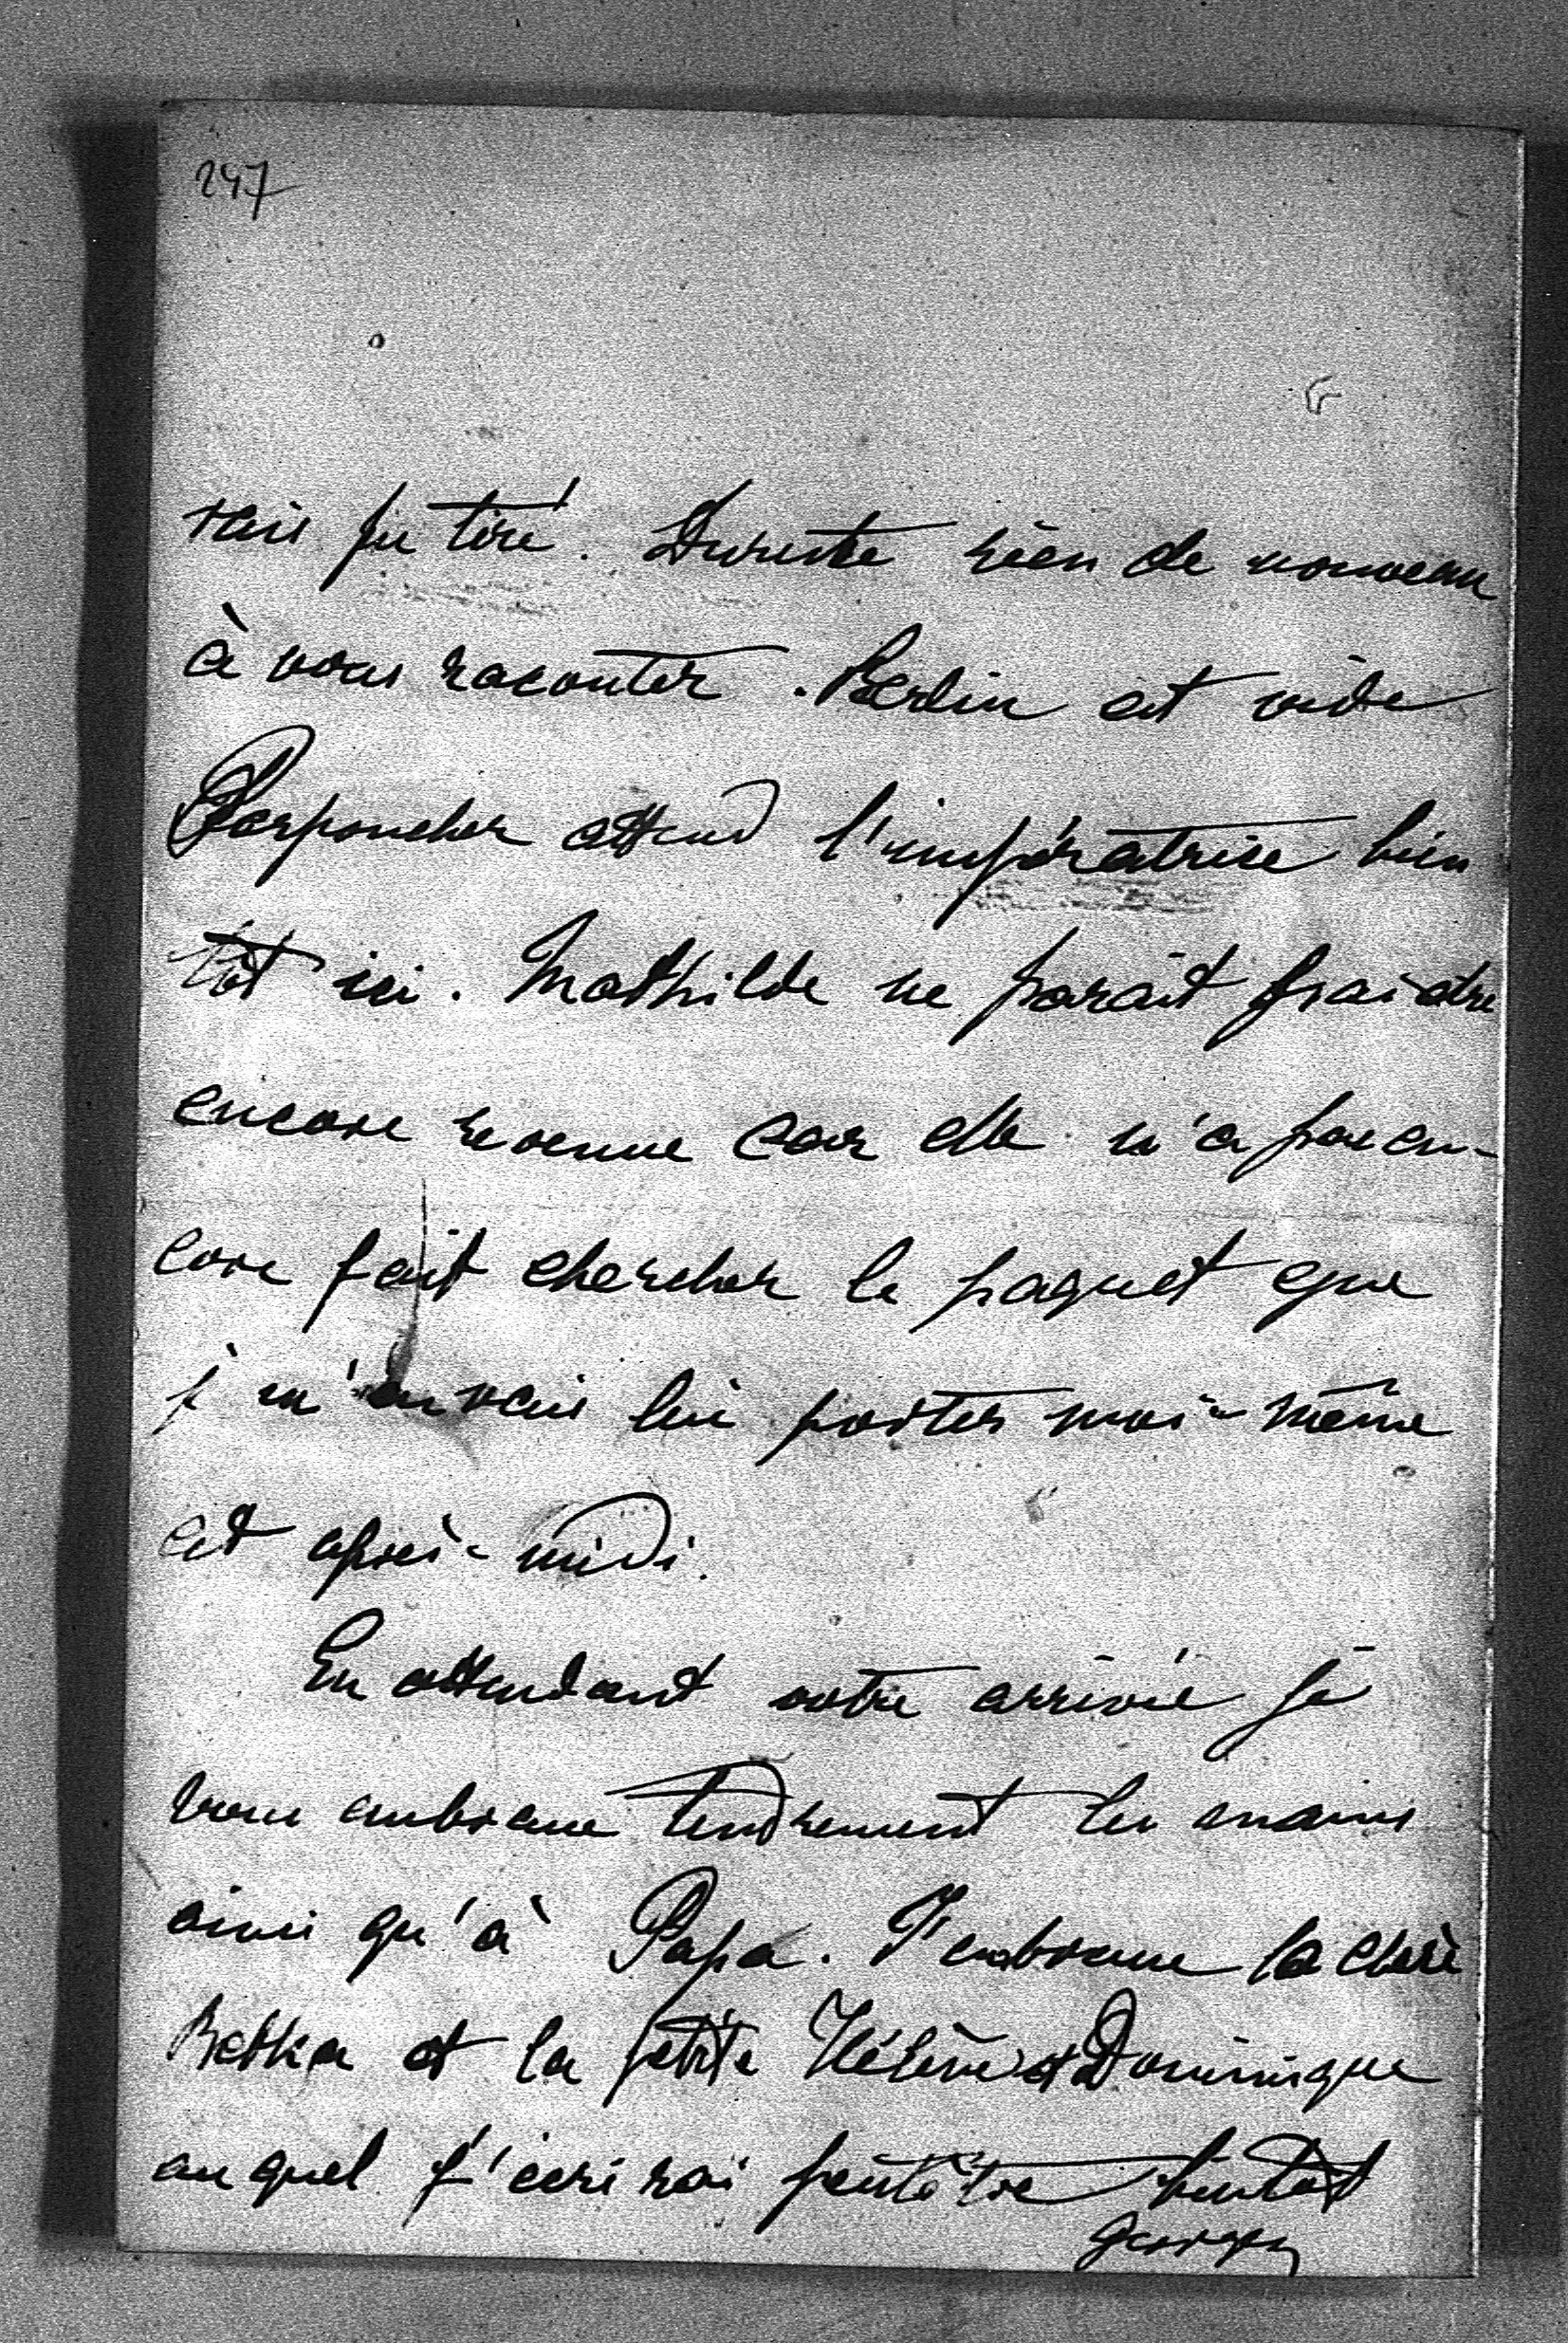 247
rais pu tiré. Dureste rien de nouveau
à vous raconter. Berlin est vide
Perponcher attend l'impératrice bien
tôt ici. Mathilde ne parait pas être
encore revenue car elle n'a pas en-
core fait chercher le paquet que
j m'en vais lui porter moi-même
cet après-midi.
En attendant votre arrivée je
vous embrasse tendrement les mains
ainsi qu'à Papa. J'embrasse la chère
Betka et la petite Hélène et Dominique
auquel j'ecrirai peutêtre bientot
Georges